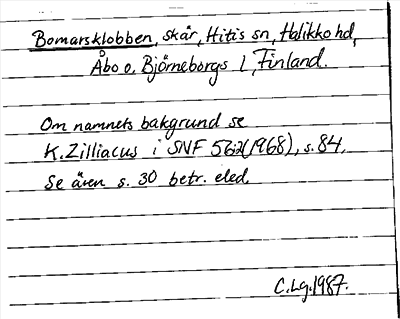 Bomarsklobben, skär, Hitis sn, Halikko hd,
Åbo o. Björneborgs l, Finland.
Om namnets bakgrund se
K. Zilliacus i SNF 56:2(1968), s. 84.
Se även s. 30 betr. eled.
C.Lg. 1987.